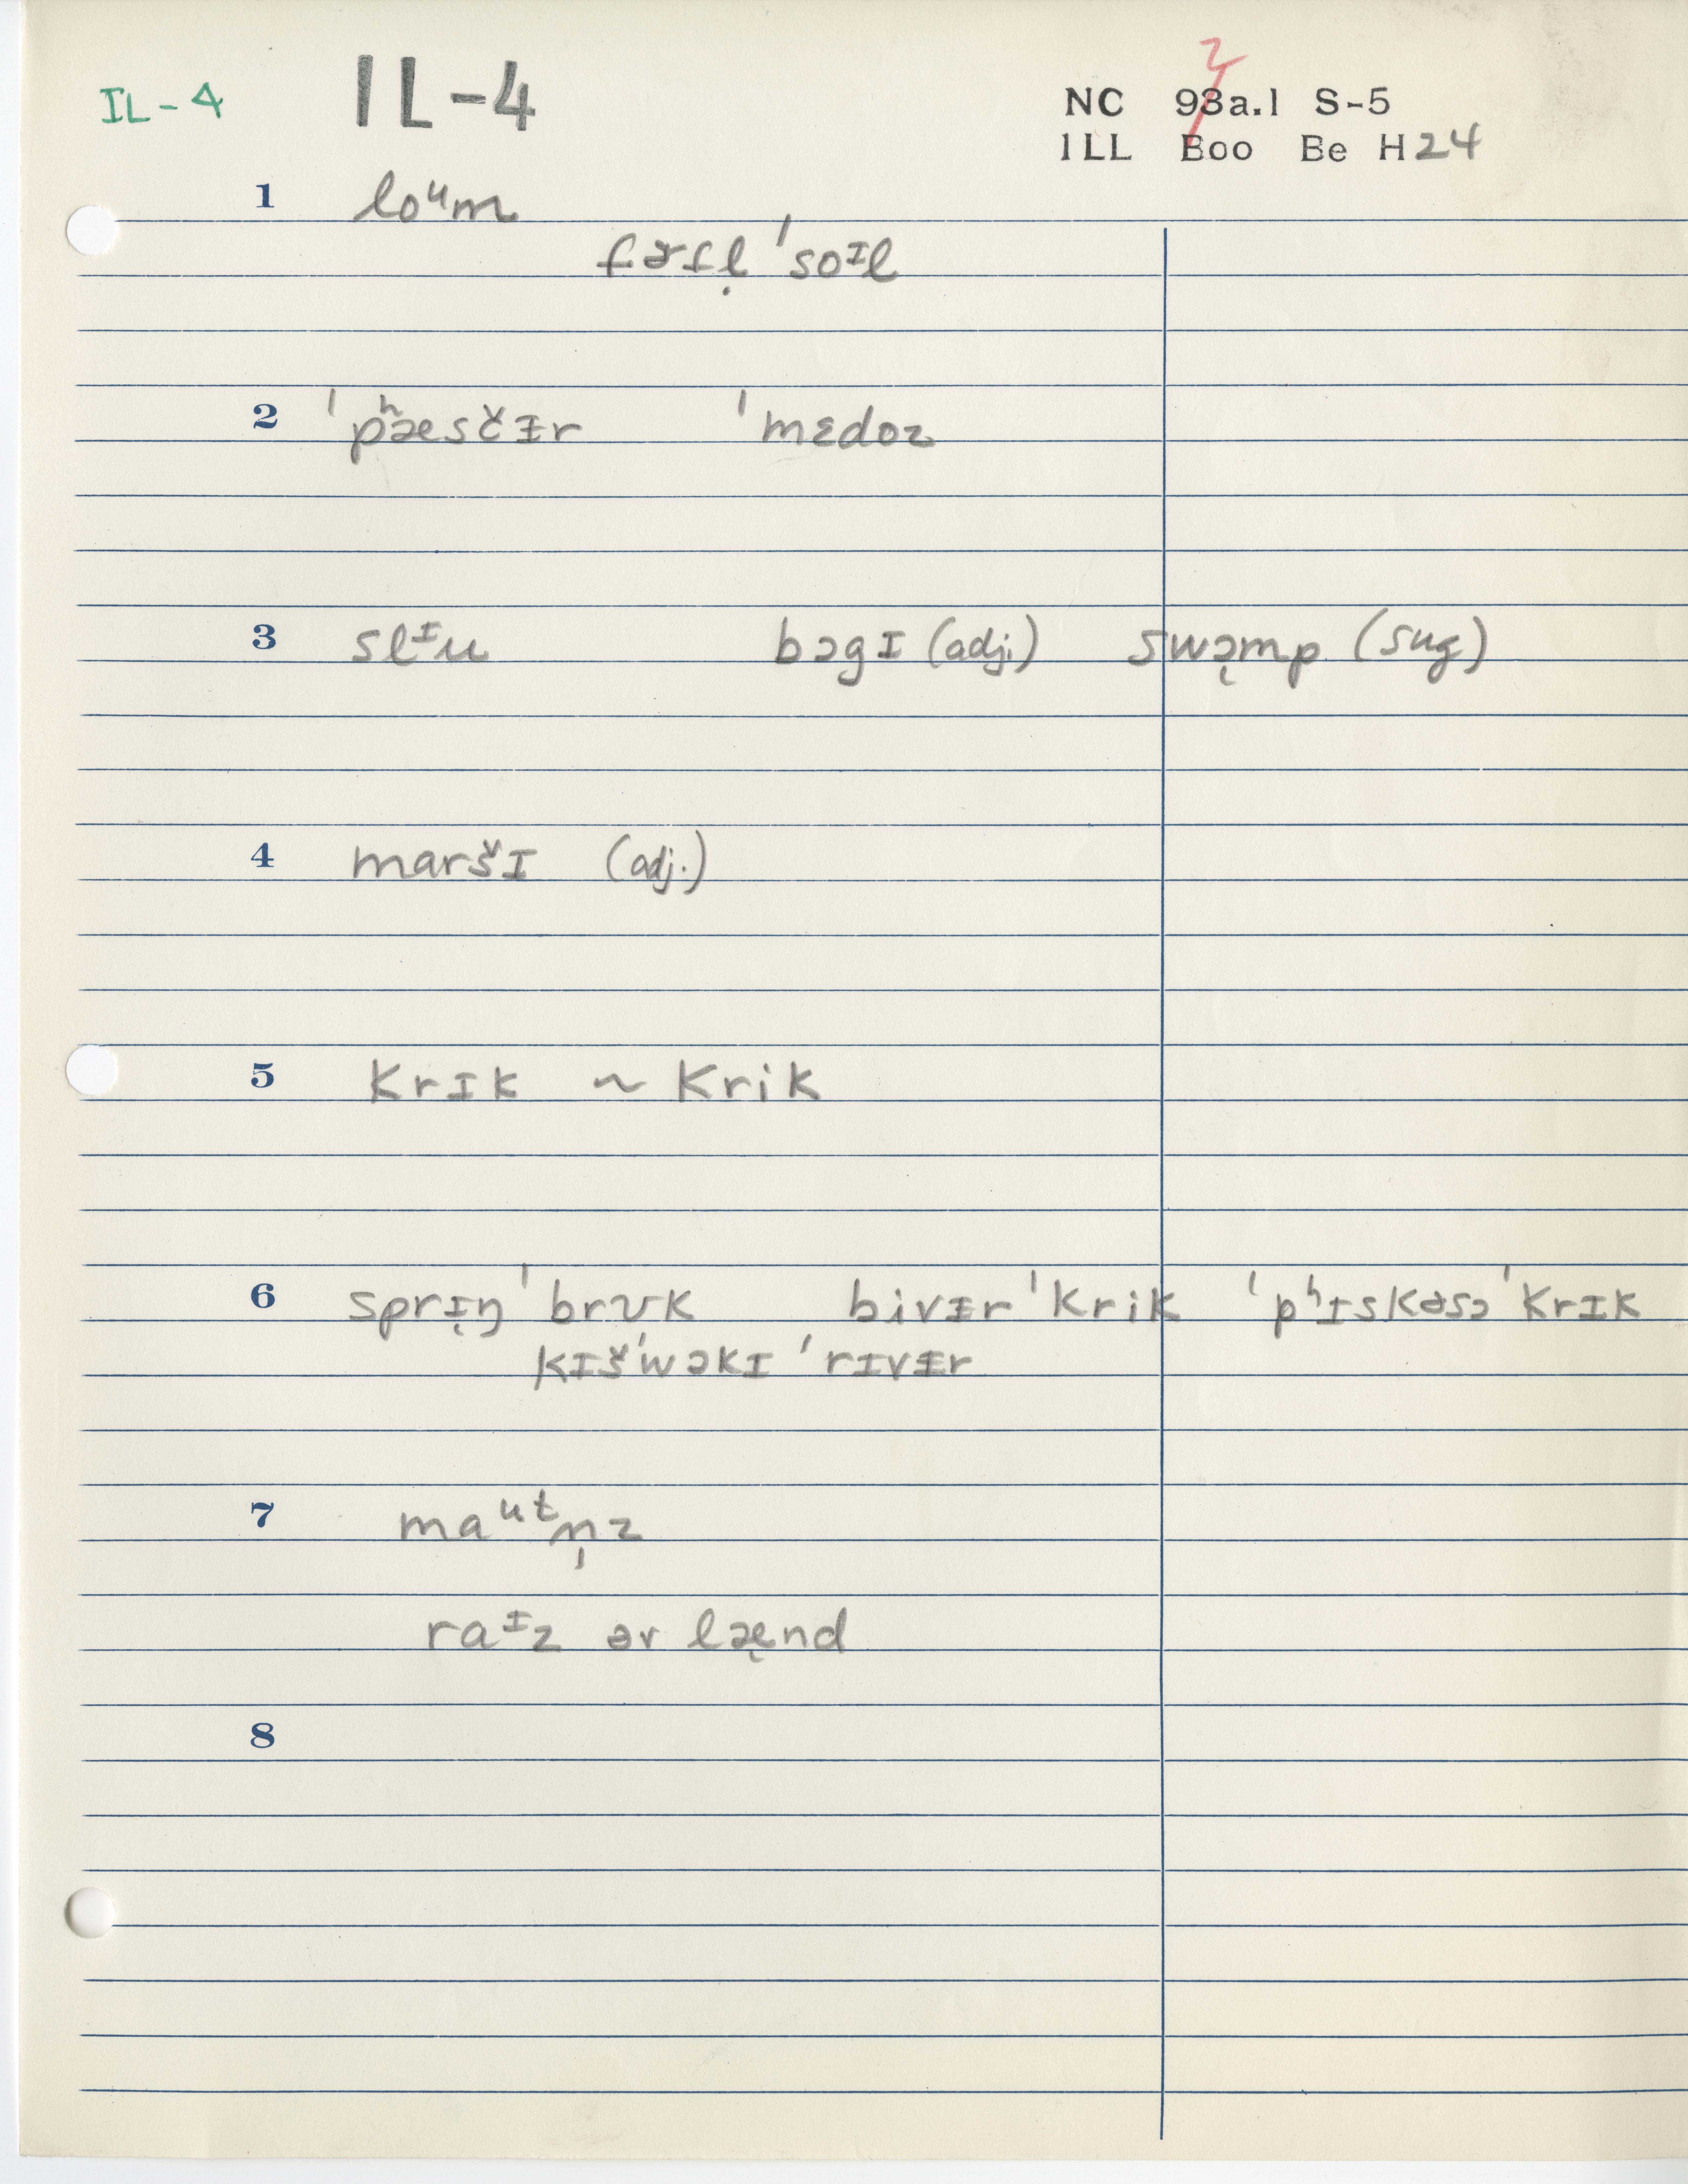 IL-4 IL-4 NC 93a.1 S-5
2
ILL Boo Be H24
1 loᵘm
fɚtl̩ ˈsoᴵl
2 ˈpʰæsčɨr ˈmɛdoz
3 slᴵu bɔgɪ (adj.) swɔ̨mp (sug)
4 maršɪ (adj.)
5 krɪk ~ krik
6 sprɪ̨ŋ ˈbrʊk bivɨr ˈkrik ˈpʰɪskəsɔ ˈkrɪk
kɪšˈwɔkɪ ˈrɪvɨr
7 maᵘᵗn̩z
raᴵz əv læ̨nd
8